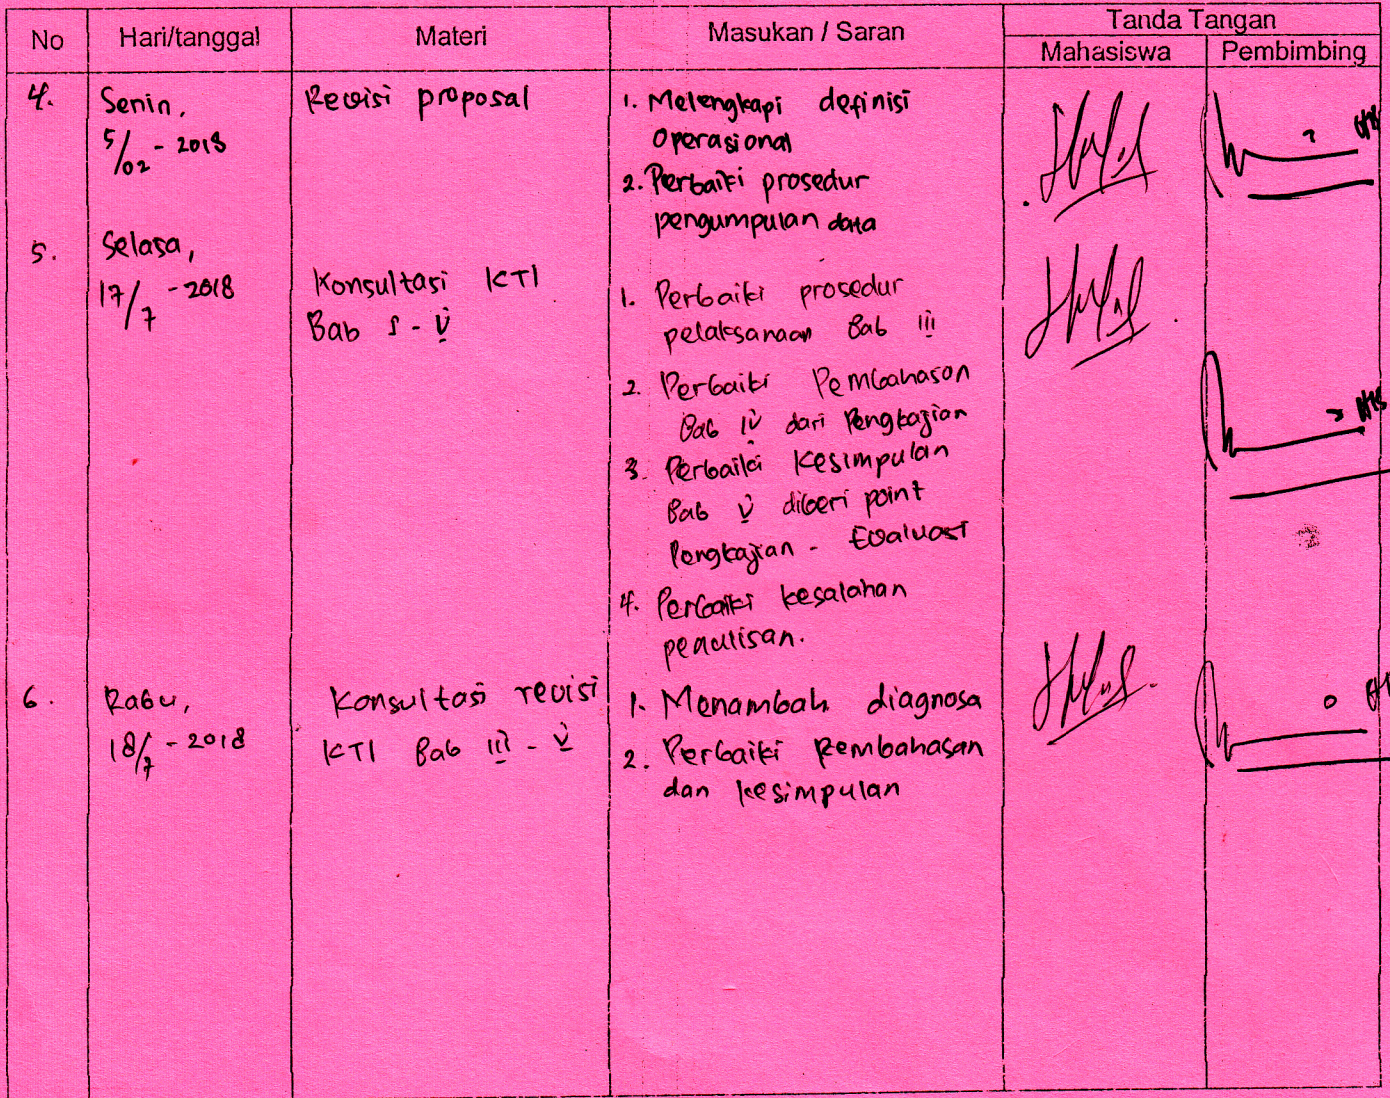 No Hari/tanggal Materi Masukan / Saran Tanda Tangan
Mahasiswa Pembimbing
4. Senin, Revisi proposal 1. Melengkapi definisi
5/02 - 2018 operasional
2. Perbaiki prosedur
pengumpulan data
5. Selasa,
17/7 - 2018 Konsultasi KTI 1. Perbaiki prosedur
Bab I - V pelaksanaan Bab III
2. Perbaiki Pembahasan
Bab IV dari Pengkajian
3. Perbaiki Kesimpulan
Bab V diberi point
Pengkajian - Evaluasi
4. Perbaiki kesalahan
penulisan.
6. Rabu, Konsultasi revisi 1. Menambah diagnosa
18/7 - 2018 KTI Bab III - V 2. Perbaiki Pembahasan
dan kesimpulan